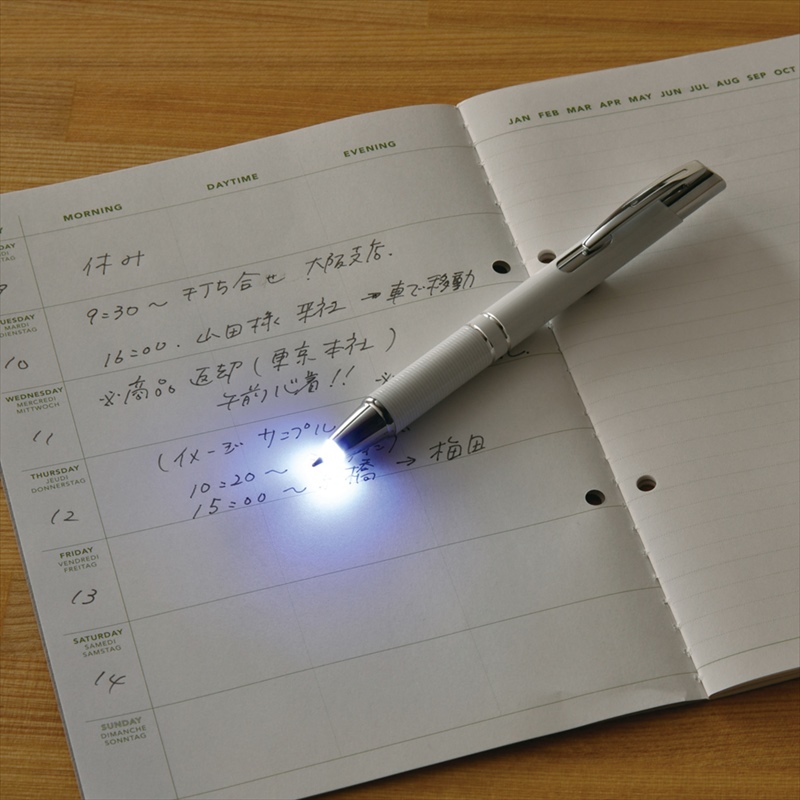 JAN FEB MAR APR MAY JUN JUL AUG SEP OCT
MORNING DAYTIME EVENING
休み
9
9:30～打ち合せ 大阪支店.
TUESDAY
MARDI
DIENSTAG
10
16:00. 山田様 来社 → 車で移動
WEDNESDAY
MERCREDI
MITTWOCH
※商品 返却(東京本社)
午前必着!! ※
11
(イメージサンプル
THURSDAY
JEUDI
DONNERSTAG
10:20～
12
15:00～ 橋 → 梅田
FRIDAY
VENDREDI
FREITAG
13
SATURDAY
SAMEDI
SAMSTAG
14
SUNDAY
DIMANCHE
SONNTAG